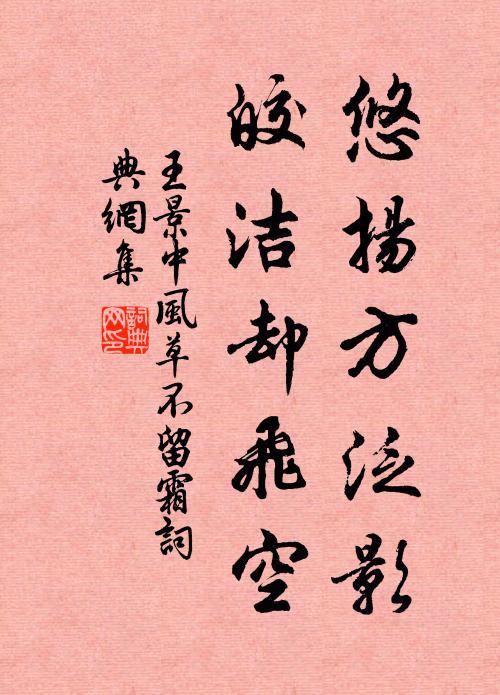 悠揚方泛影
皎洁却飛空
王景中風草不留霜詞
典網集
詞典
网印